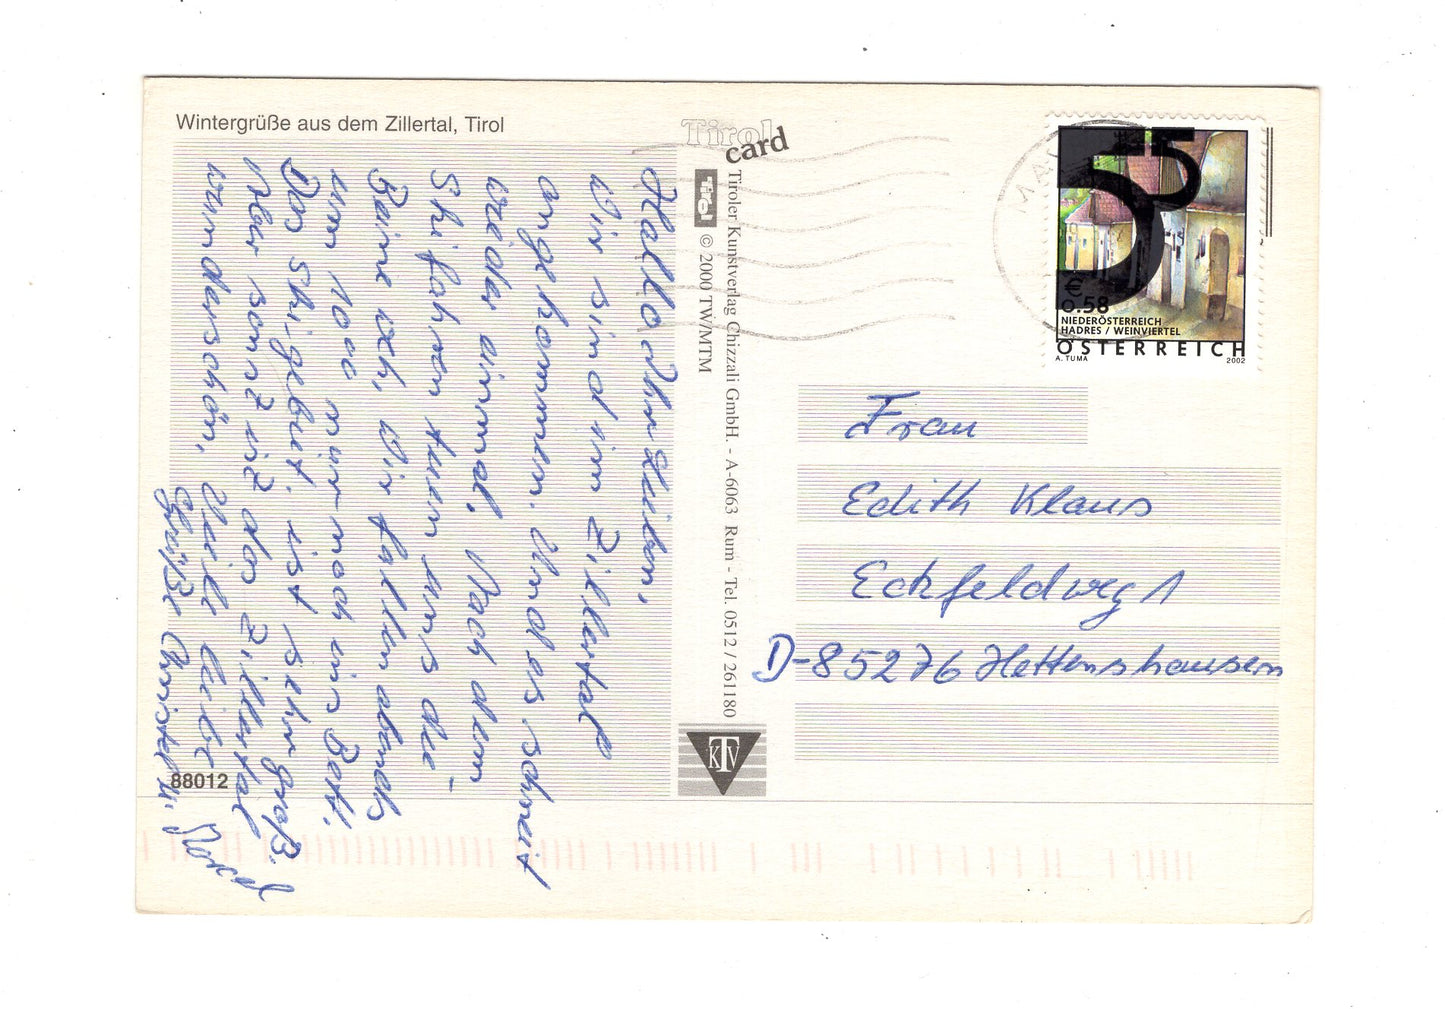 Wintergrüße aus dem Zillertal, Tirol
Hallo Ihr Lieben,
Wir sind im Zillertal
angekommen. Und es schneit
wieder einmal. Nach dem
Skifahren tuen uns die
Beine weh, Wir fallen abends
um 10oo nur noch ins Bett.
Das Skigebiet ist sehr groß.
Aber sonst ist das Zillertal
wunderschön, Viele liebe
Grüße Christel u. Marcel
88012
Tirol
card
Tirol
© 2000 TW/MTM
Tiroler Kunstverlag Chizzali GmbH. - A-6063 Rum - Tel. 0512 / 261180
KTV
55
€
0.58
NIEDERÖSTERREICH
HADRES / WEINVIERTEL
ÖSTERREICH
A. TUMA 2002
Frau
Edith Klaus
Eckfeldweg 1
D-85276 Hettenshausen